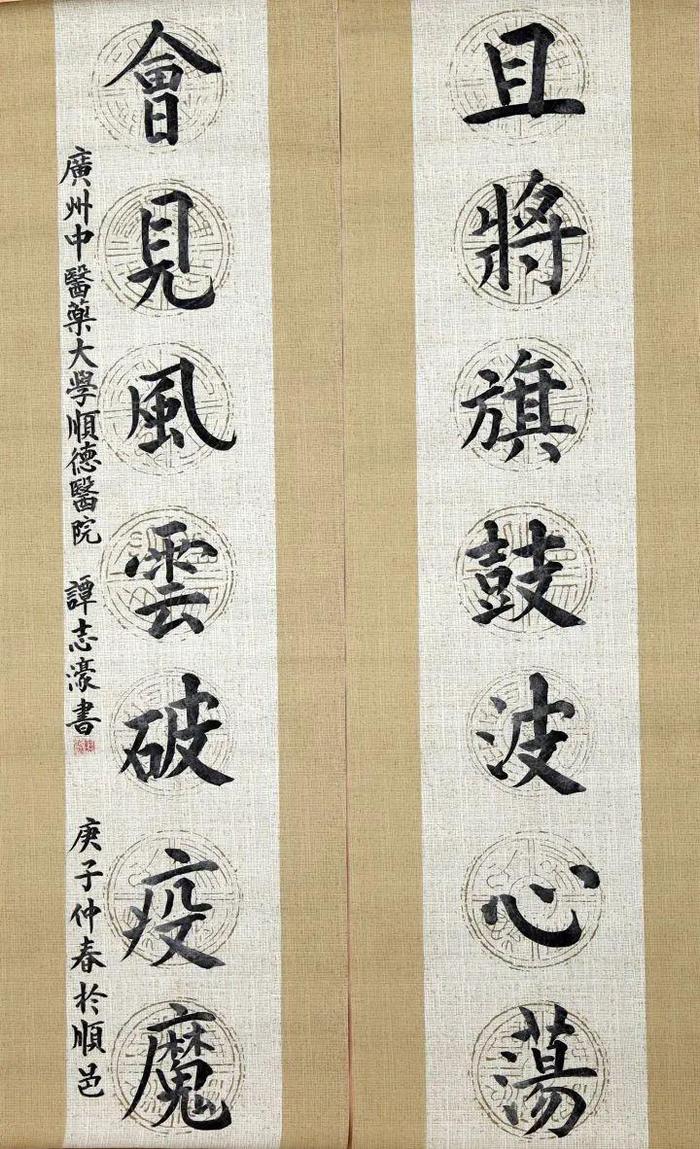 且將旗鼓波心蕩
會見風雲破疫魔
廣州中醫藥大學順德醫院 譚志濠書
庚子仲春於順邑